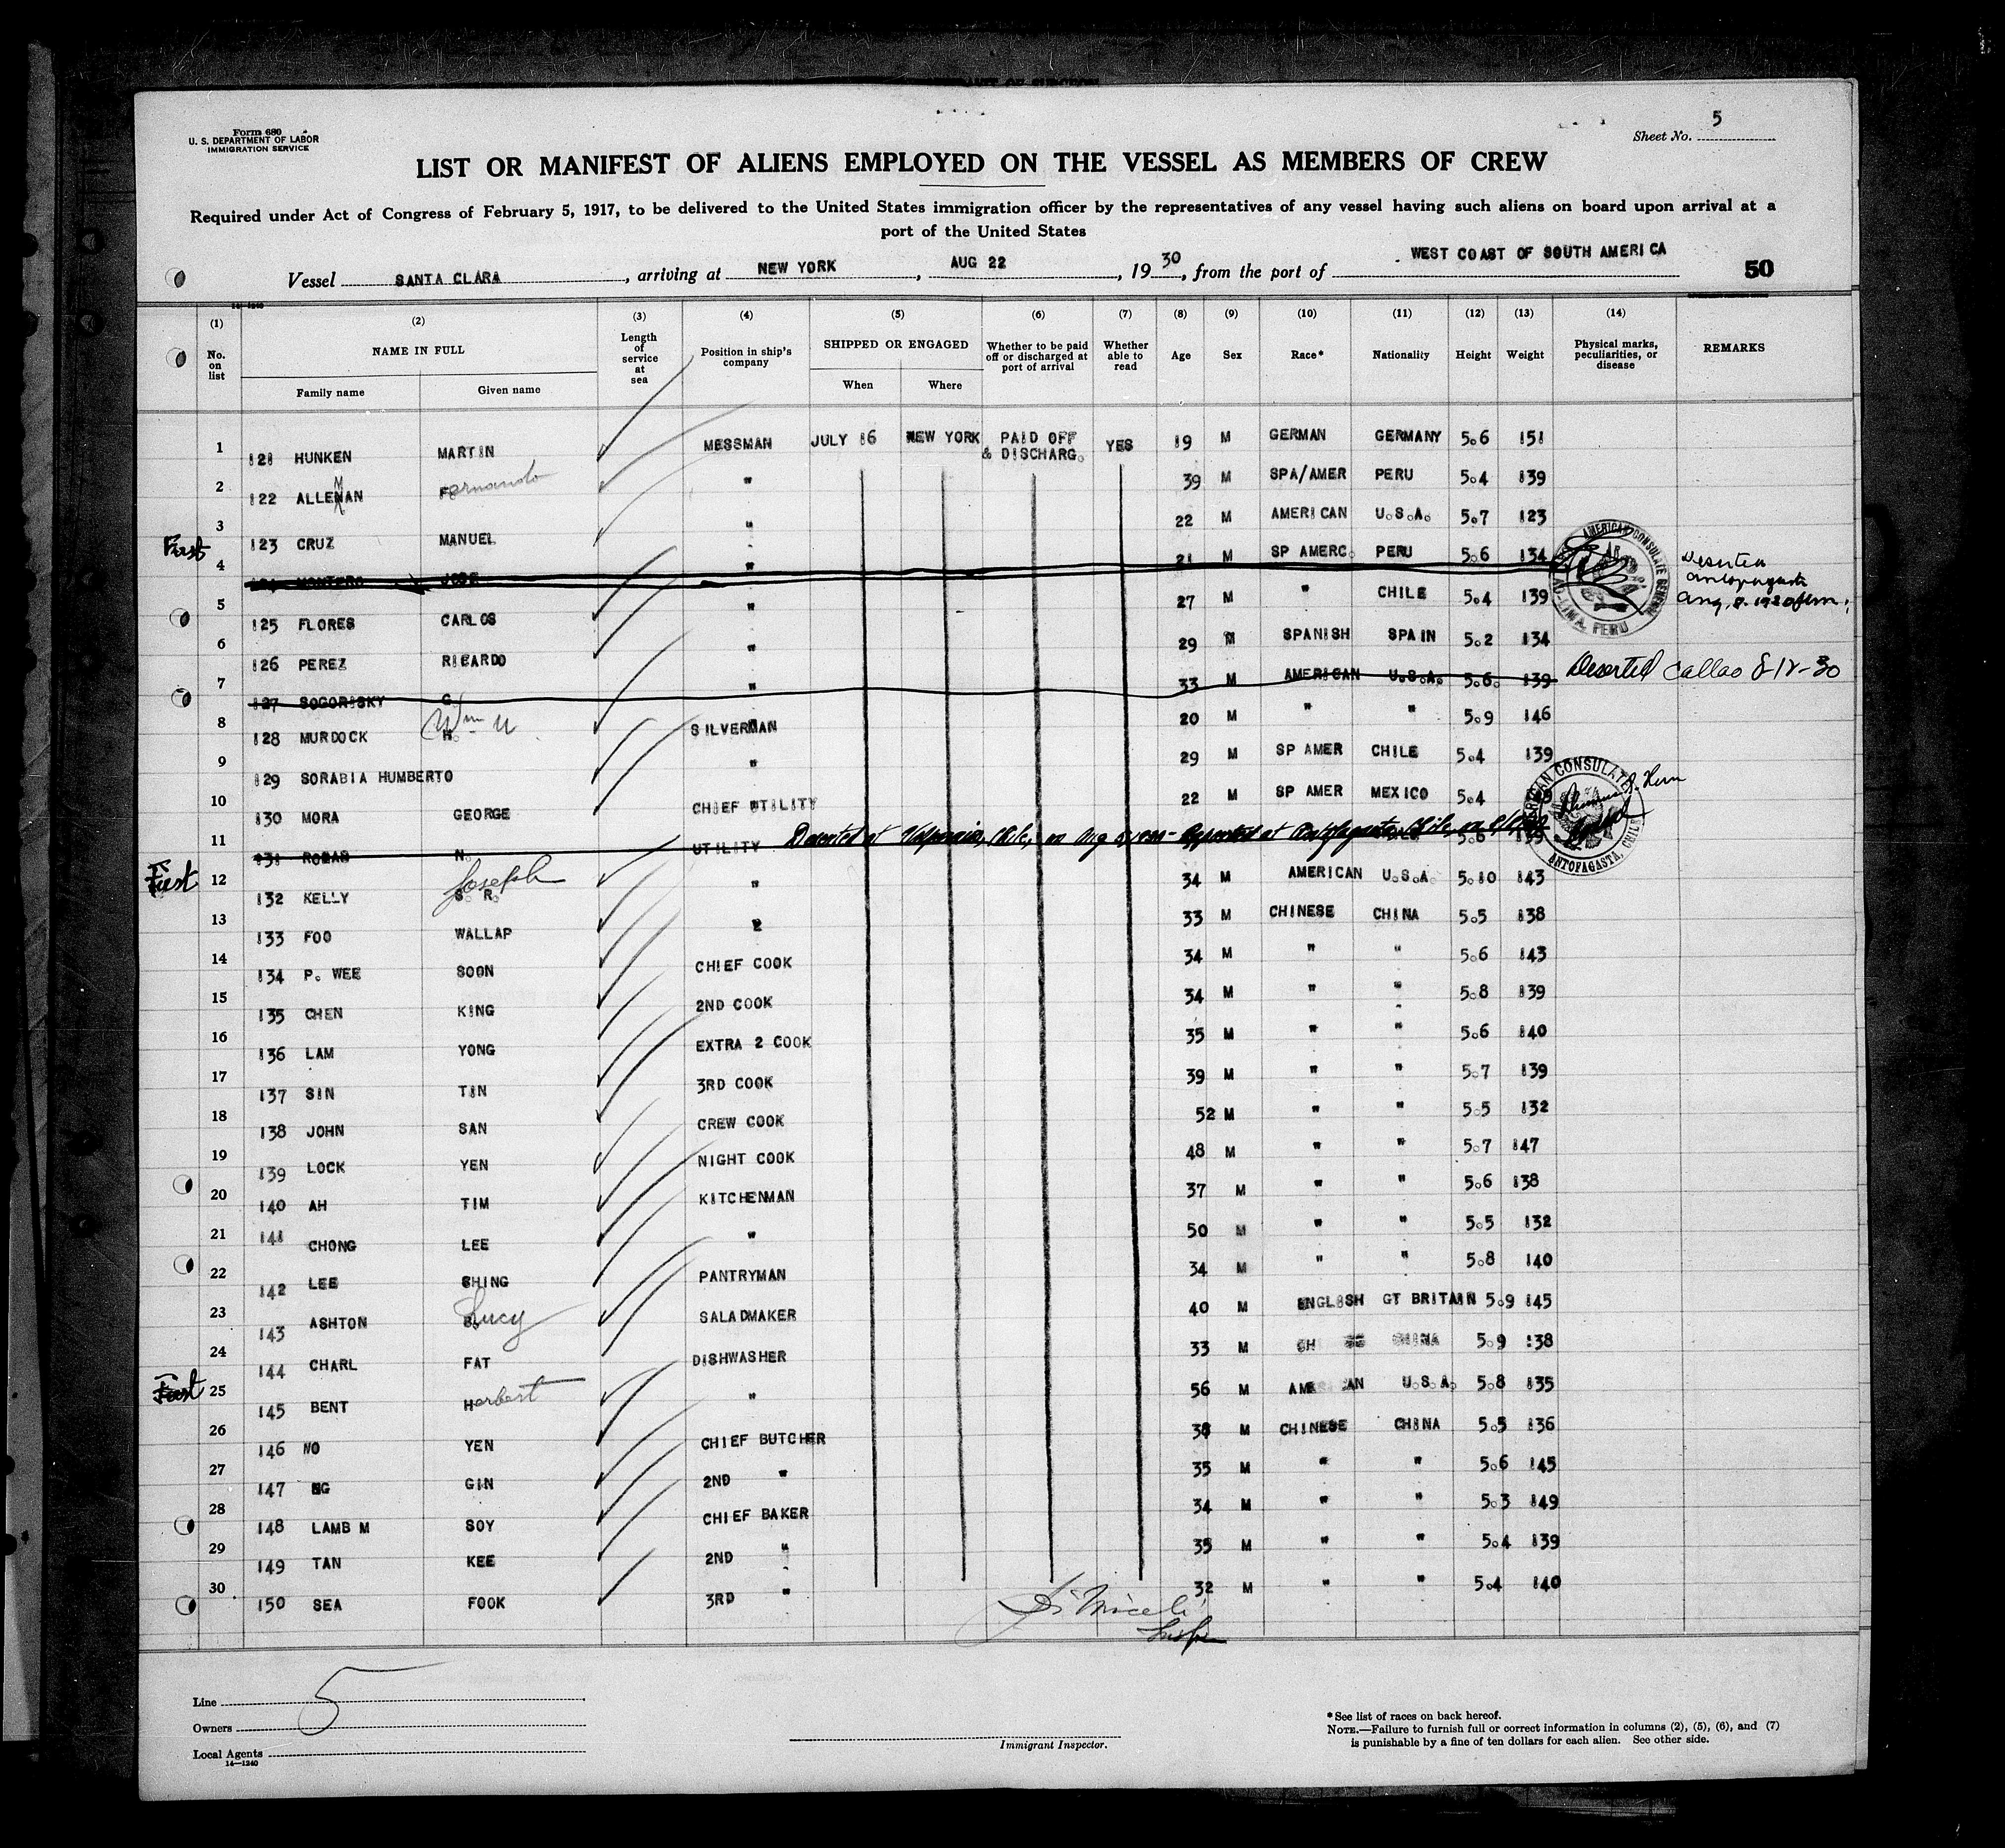 Form 680
U. S. DEPARTMENT OF LABOR
IMMIGRATION SERVICE
Sheet No. 5
LIST OR MANIFEST OF ALIENS EMPLOYED ON THE VESSEL AS MEMBERS OF CREW
Required under Act of Congress of February 5, 1917, to be delivered to the United States immigration officer by the representatives of any vessel having such aliens on board upon arrival at a
port of the United States
Vessel SANTA CLARA, arriving at NEW YORK, AUG 22, 1930, from the port of WEST COAST OF SOUTH AMERICA 50
(1) (2) (3) (4) (5) (6) (7) (8) (9) (10) (11) (12) (13) (14)
No. on list NAME IN FULL Family name Given name Length of service at sea Position in ship's company SHIPPED OR ENGAGED When Where Whether to be paid off or discharged at port of arrival Whether able to read Age Sex Race* Nationality Height Weight Physical marks, peculiarities, or disease REMARKS
1 121 HUNKEN MARTIN MESSMAN JULY 16 NEW YORK PAID OFF & DISCHARG. YES 19 M GERMAN GERMANY 5.6 151
2 122 ALLEMAN Fernando " 39 M SPA/AMER PERU 5.4 139
3 123 CRUZ MANUEL " 22 M AMERICAN U.S.A. 5.7 123
First
4 124 MONTERO JOSE " 21 M SP AMERC. PERU 5.6 134 Deserted Antofagasta Aug. 8. 1930
AMERICAN CONSULATE GENERAL LIMA, PERU
5 125 FLORES CARLOS " 27 M " CHILE 5.4 139
6 126 PEREZ RICARDO " 29 M SPANISH SPAIN 5.2 134
7 127 SOGORISKY G. " 33 M AMERICAN U.S.A. 5.6. 139 Deserted Callao 8-12-30
8 128 MURDOCK H. Wm SILVERMAN 20 M " " 5.9 146
9 129 SORABIA HUMBERTO " 29 M SP AMER CHILE 5.4 139
10 130 MORA GEORGE CHIEF UTILITY 22 M SP AMER MEXICO 5.4
AMERICAN CONSULATE ANTOFAGASTA, CHILE
11 131 N. UTILITY Deserted at Valparaiso, Chile, on Aug Reported at Antofagasta, Chile, on 5.6
First
12 132 KELLY S. R. Joseph " 34 M AMERICAN U.S.A. 5.10 143
13 133 FOO WALLAP " 33 M CHINESE CHINA 5.5 138
14 134 P. WEE SOON CHIEF COOK 34 M " " 5.6 143
15 135 CHEN KING 2ND COOK 34 M " " 5.8 139
16 136 LAM YONG EXTRA 2 COOK 35 M " " 5.6 140
17 137 SIN TIN 3RD COOK 39 M " " 5.7 139
18 138 JOHN SAN CREW COOK 52 M " " 5.5 132
19 139 LOCK YEN NIGHT COOK 48 M " " 5.7 147
20 140 AH TIM KITCHENMAN 37 M " " 5.6 138
21 141 CHONG LEE " 50 M " " 5.5 132
22 142 LEE SHING PANTRYMAN 34 M " " 5.8 140
23 143 ASHTON Lucy SALADMAKER 40 M ENGLISH GT BRITAIN 5.9 145
24 144 CHARL FAT DISHWASHER 33 M CHINA 5.9 138
First
25 145 BENT Herbert " 56 M AMERICAN U.S.A. 5.8 135
26 146 NO YEN CHIEF BUTCHER 38 M CHINESE CHINA 5.5 136
27 147 NG GIN 2ND " 35 M " " 5.6 145
28 148 LAMB M SOY CHIEF BAKER 34 M " " 5.3 149
29 149 TAN KEE 2ND " 35 M " " 5.4 139
30 150 SEA FOOK 3RD " 32 M " " 5.4 140
Line
Owners
Local Agents
5
14—1240
Immigrant Inspector.
*See list of races on back hereof.
NOTE.—Failure to furnish full or correct information in columns (2), (5), (6), and (7)
is punishable by a fine of ten dollars for each alien. See other side.